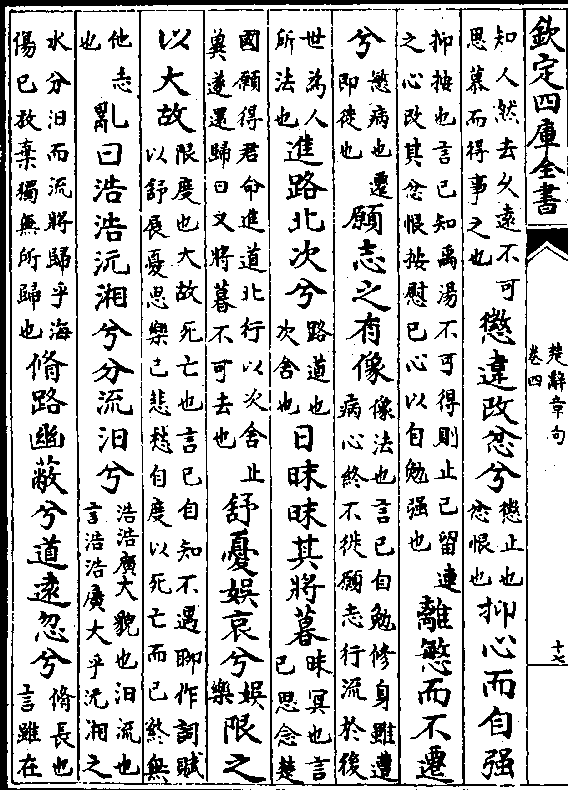 欽定四庫全書
楚辭章句
卷四
十七
知人然去乆遠不可思慕而得事之也懲違改忿兮懲止也忿恨也抑心而自强
抑按也言已知禹湯不可得則止已留連之心改其忿恨按慰已心以自勉强也離慜而不遷
兮慜病也遷即徙也願志之有像像法也言已自勉修身雖遭病心終不徙願志行流於後
世為人所法也進路北次兮路道也次舍也日昧昧其將暮昧冥也言已思念楚
國願得君命進道北行以次舍止冀遂還歸日又將暮不可去也舒憂娛哀兮娛樂限之
以大故限度也大故死亡也言已自知不遇聊作詞賦以舒展憂思樂已悲愁自度以死亡而已終無
他志也亂曰浩浩沅湘兮分流汩兮浩浩廣大貌也汩流也言浩浩廣大乎沅湘之
水分汩而流將歸乎海傷已放棄獨無所歸也脩路幽蔽兮道遠忽兮脩長也言雖在